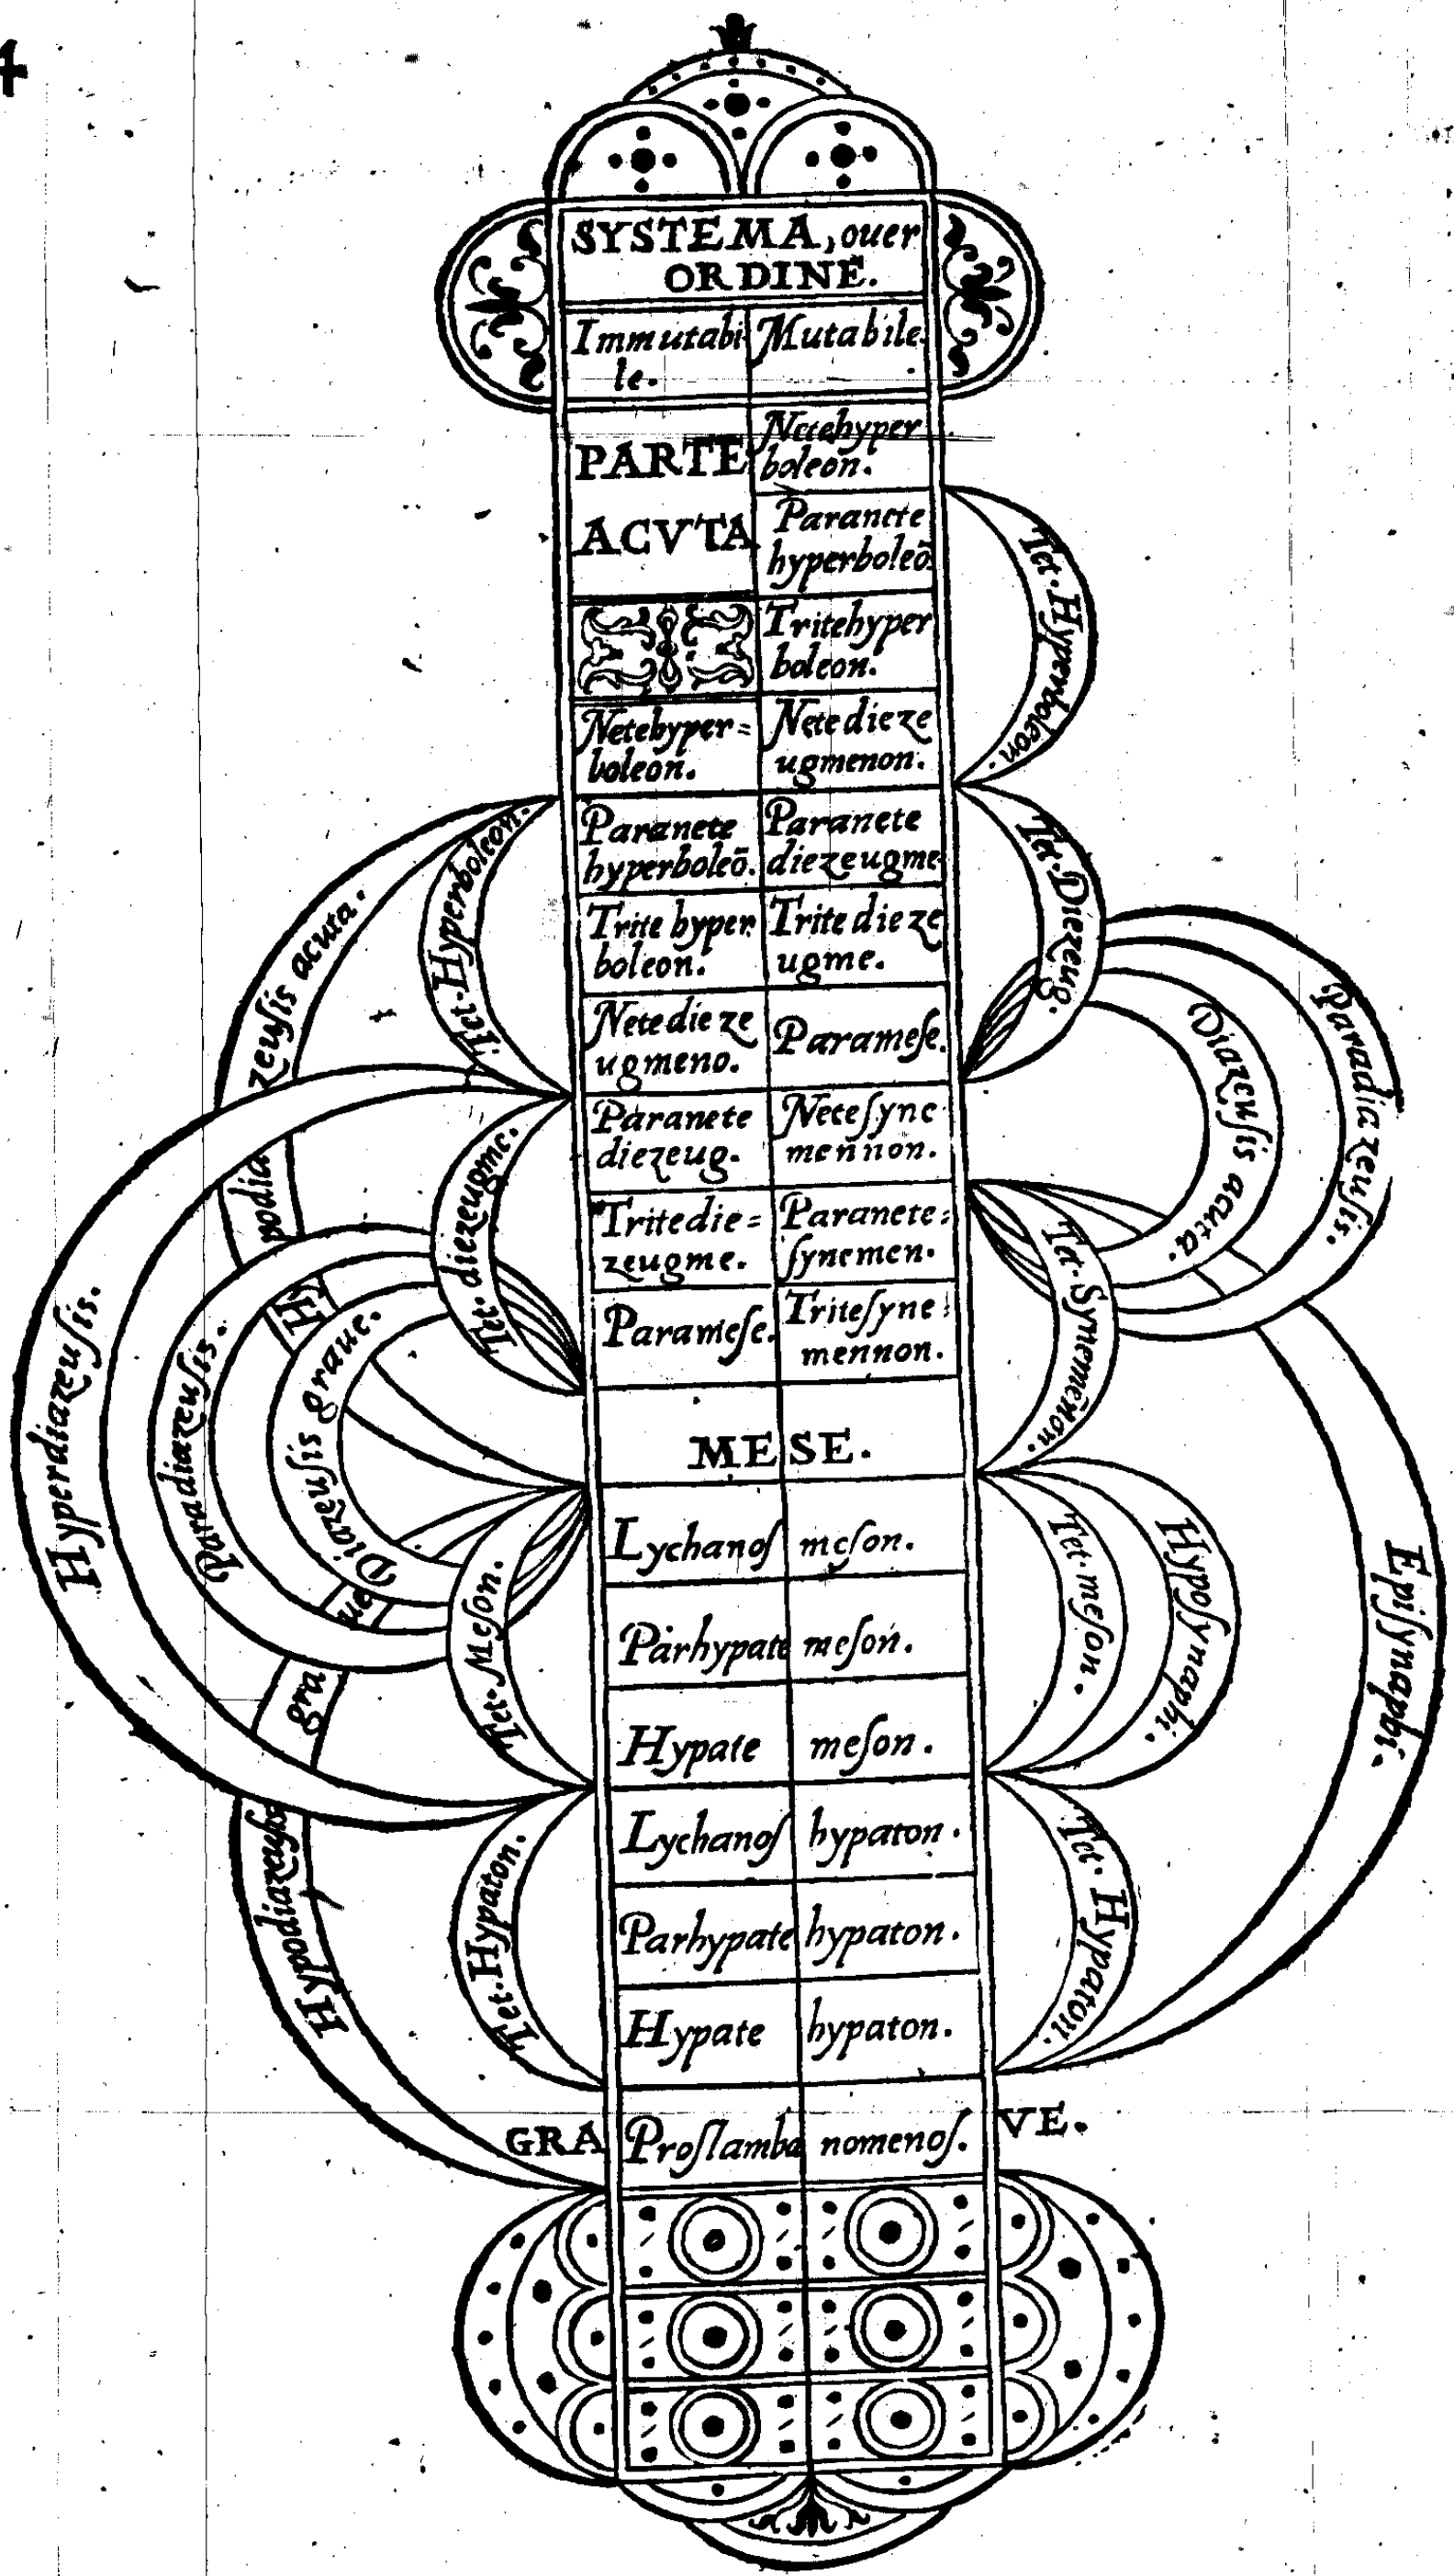 4
SYSTEMA, ouer
ORDINE.
Immutabi
le.
Mutabile.
PARTE
ACVTA
Netehyper
boleon.
Paranete
hyperboleō.
Tritehyper
boleon.
Netehyper=
boleon.
Nete dieze
ugmenon.
Paranete
hyperboleō.
Paranete
diezeugme
Trite hyper
boleon.
Trite dieze
ugme.
Nete dieze
ugmeno.
Parameſe.
Paranete
diezeug.
Neteſyne
mennon.
Tritedie=
zeugme.
Paranete=
ſynemen.
Parameſe.
Triteſyne=
mennon.
MESE.
Lychanoſ meſon.
Parhypate meſon.
Hypate meſon.
Lychanoſ hypaton.
Parhypate hypaton.
Hypate hypaton.
GRA Proſlamba nomenoſ. VE.
Tet. Hyperboleon.
zeuſis acuta.
podia
Hy
Tet. diezeugme.
Hyperdiazeuſis.
Paradiazeuſis.
Diazeuſis graue.
ue
gra
Tet. Meſon.
Hypodiazeuſis
Tet. Hypaton.
Tet. Hyperboleon.
Tet. Diezeug.
Diazeuſis acuta.
Paradiazeuſis.
Tet. Synemēnon.
Tet. meſon.
Hypoſynaphi.
Epiſynaphi.
Tet. Hypaton.